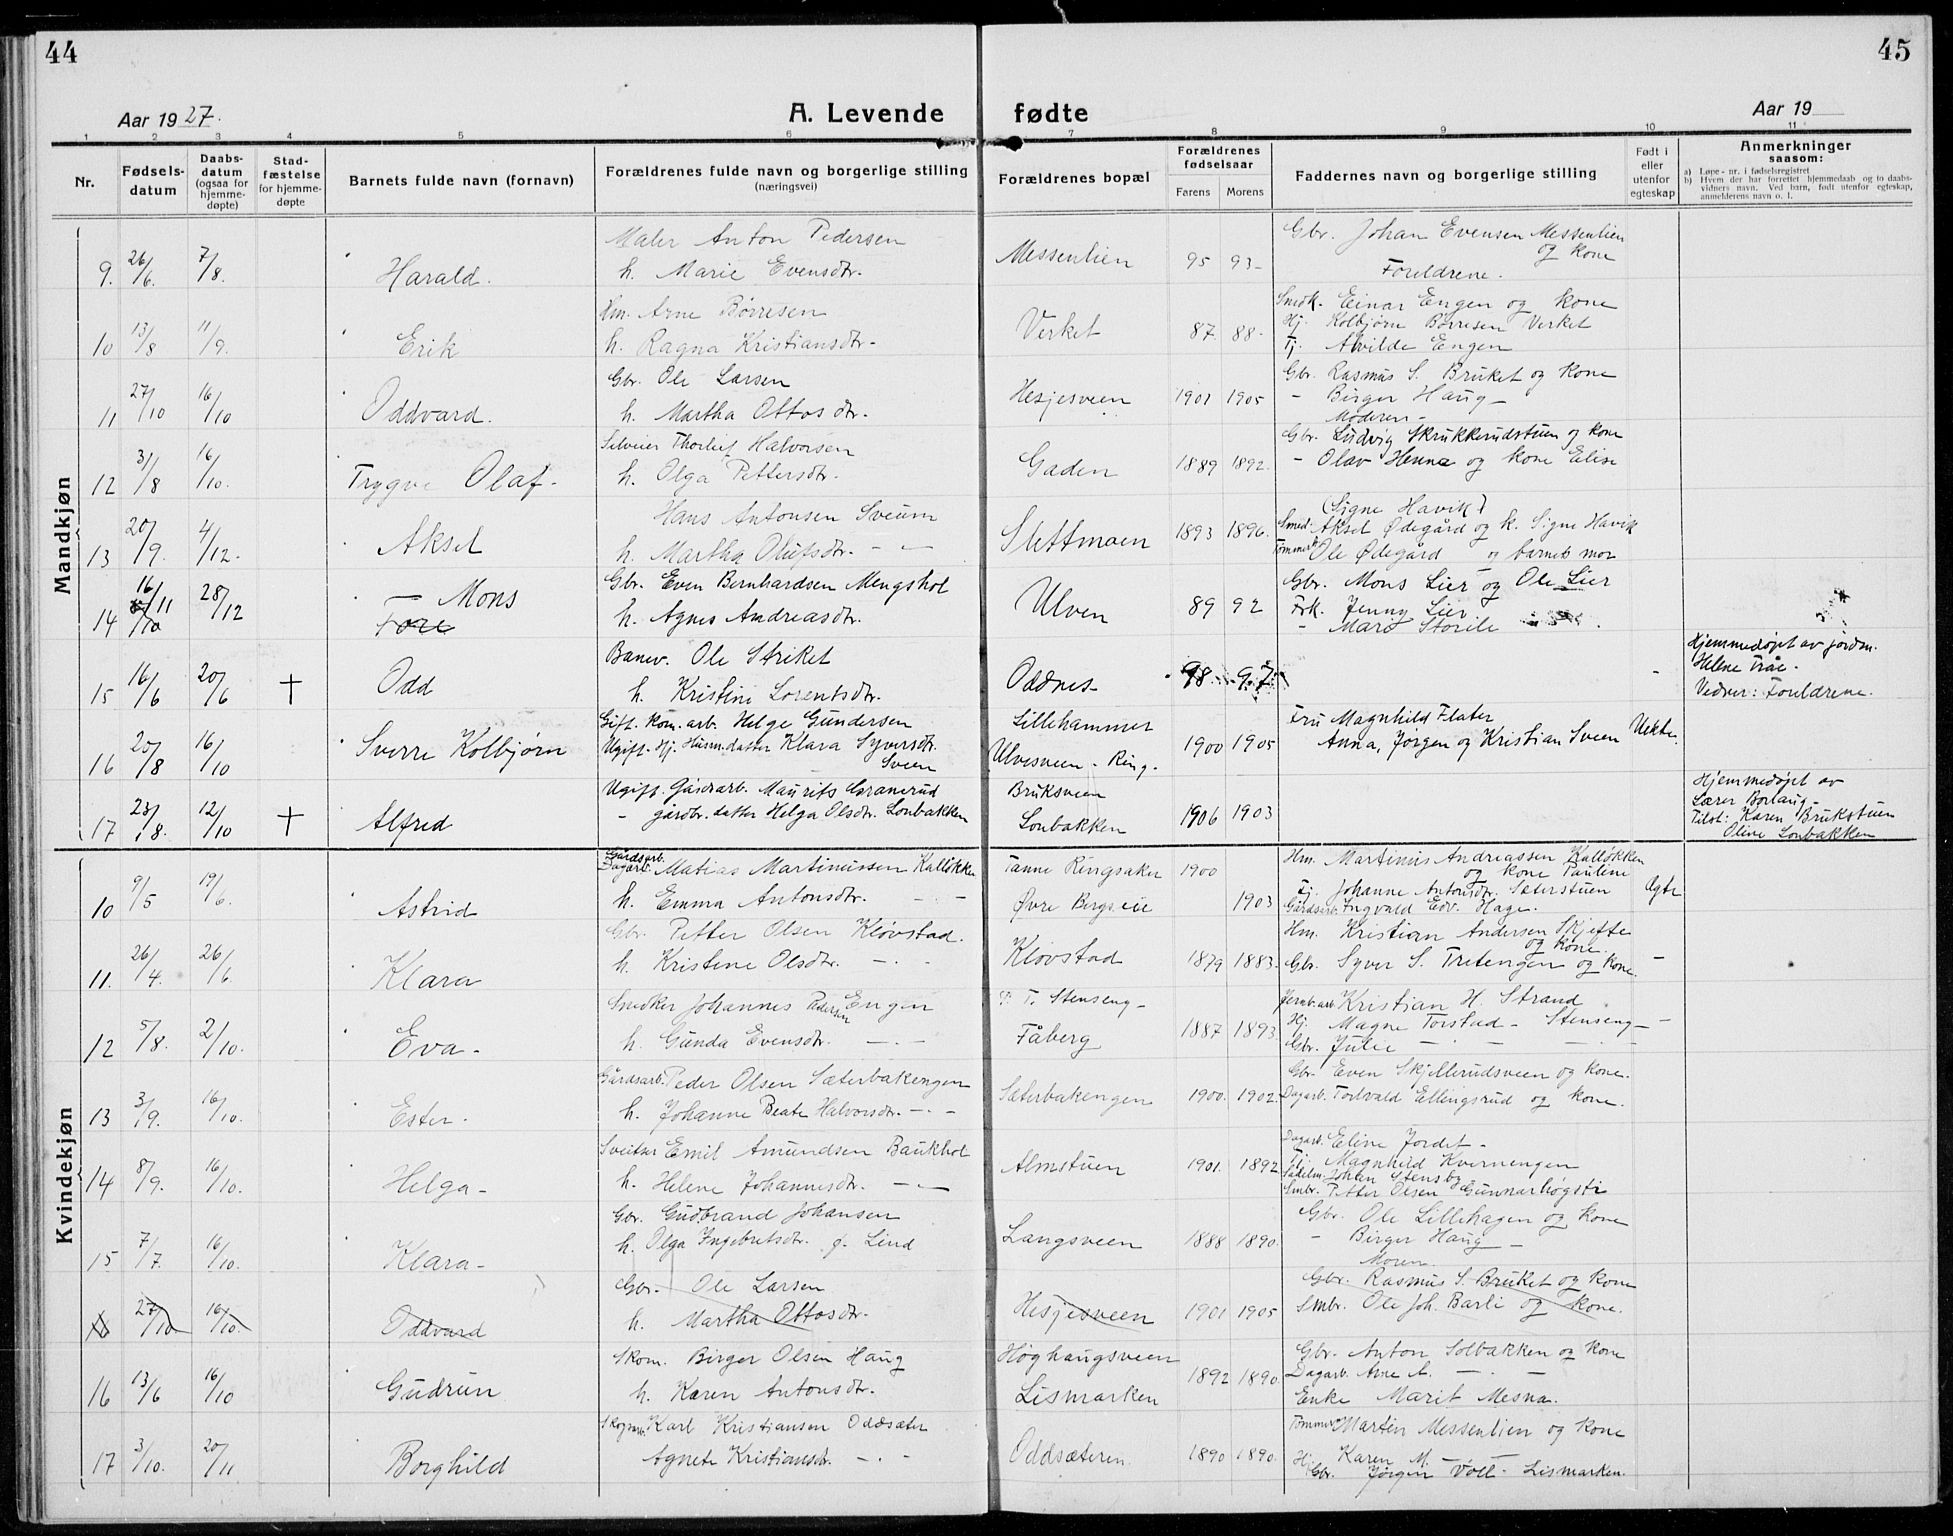 44
45
Aar 1927.
A. Levende fødte
Aar 19
1 2 3 4 5 6 7 8 9 10 11
Nr.
Fødsels-datum
Daabs-datum (ogsaa for hjemme-døpte)
Stad-fæstelse for hjemme-døpte
Barnets fulde navn (fornavn)
Forældrenes fulde navn og borgerlige stilling (næringsvei)
Forældrenes bopæl
Forældrenes fødselsaar
Farens Morens
Faddernes navn og borgerlige stilling
Født i eller utenfor egteskap
Anmerkninger saasom:
a) Løpe-nr. i fødselsregistret
b) Hvem der har forrettet hjemmedaab og to daabsvidners navn. Ved barn, født utenfor egteskap, anmelderens navn o. l.
Mandkjøn
Maler Anton Pedersen
Gbr. Johan Evensen Messenlien og kone
9. 26/6. 7/8. Harald. h. Marie Evensdtr. Messenlien 95 93- Foreldrene.
Hm. Arne Børresen
Snedk. Einar Engen og kone
Hj. Kolbjørn Børresen Verket
10 13/8 11/9. Erik h. Ragna Kristiansdtr- Verket 87. 88- Tj. Alvilde Engen
Gbr. Ole Larsen
Gbr. Rasmus S. Bruket og kone
- Birger Haug -
11 27/10 16/10 Oddvard. h. Martha Ottosdtr. Hesjesveen 1901 1905 Moderen-
Thorleif Halvorsen
Gbr. Ludvig Skrukkerudstuen og kone
12 3/8 16/10. Trygve Olaf- h. Olga Pettersdtr. Gaden 1889 1892. - Olav Henne og kone Elise
Hans Antonsen Sveum
(Signe Havik)
Smed. Aksel Ødegård og k. Signe Havik
13 20/9. 4/12. Aksel h. Martha Olufsdtr. - - Slettmoen 1893 1896. Ole Ødegård og barnets mor
Gbr. Even Bernhardsen Mengshol
Gbr. Mons Lier og Ole Lier
14 16/11 28/12 Tore Mons h. Agnes Andreasdtr. Ulven 89 92 Frk. Jenny Lier
Banev. Ole Striket
Hjemmedøpt av jordm. Helene Tråe.
15 16/6 20/6 † Odd h. Kristine Lorentsdtr. Oddnes 98 97 - Vedner: Foreldrene.
Gift. kom. arb. Helge Gundersen
Lillehammer
Fru Magnhild Flater
Uekte.
16 20/8 16/10 Sverre Kolbjørn Ugift. Hj. Husm.datter Klara Syversdtr. Sveen Ulvesveen - Ring. 1900 1905 Anna, Jørgen og Kristian Sveen
Ugift. Gårdsarb. Maurits Granerud
Bruksveen
Hjemmedøpt av Lærer Borlaug-
17 23/8. 12/10 † Alfred - gårdbr. datter Helga Olsdtr. Lonbakken Lonbakken 1906 1903 Tilst: Karen Brukstuen
Oline Lonbakken
Kvindekjøn
Gårdsarb.
Dagarb. Matias Martinussen Kalløkken
Tanne Ringsaker 1900
Hm. Martinus Andreassen Kalløkken og kone Pauline
Tj. Johanne Antonsdtr. Sæterstuen
10 9/5 19/6. Astrid h. Emma Antonsdtr. - - Øvre Bergseie 1903 Gårdsarb. Ingvald Edv. Hage. Egte
Gbr. Petter Olsen Kløvstad.
Hm. Kristian Andersen Skjefte og kone.
11. 26/4. 26/6 Klara h. Kristine Olsdtr. - - Kløvstad 1879 1883. Gbr. Syver S. Tretengen og kone. -
Snedker Johannes Pedersen Engen
P. T. Stenseng-
Jernb.arb. Kristian H. Strand
Hj. Magne Torstad - Stenseng-
12 5/8. 2/10. Eva- h. Gunda Evensdtr. - - Fåberg 1887 1893. Gbr. Julie - - -
Gårdsarb. Peder Olsen Sæterbakengen
Gbr. Even Skjellerudsveen og kone.
13 3/9. 16/10. Ester. h. Johanne Beate Halvorsdtr. - - Sæterbakengen 1900. 1902. Dagarb. Torlvald Ellingsrud og kone.
Sveitser Emil Amundsen Baukhol
Dagarb. Eline Jordet-
Tj. Magnhild Kvernengen
Johan Stensby
14 8/9. 16/10. Helga- h. Helene Johannesdtr. - - Almstuen 1901. 1892 Smbr. Petter Olsen Gunnarhøgsti
Gbr. Gudbrand Johansen
Gbr. Ole Lillehagen og kone
- Birger Haug -
15 7/7. 16/10. Klara- h. Olga Ingebretsdtr. f. Lind Langsveen 1888 1890. Moren.
Gbr. Ole Larsen
Gbr. Rasmus S. Bruket og kone
27/10 16/10. Oddvard h. Martha Ottosdtr. Hesjesveen 1901 1905 Smbr. Ole Joh. Barli og kone.
Skom. Birger Olsen Haug
Høghaugsveen
Gbr. Anton Solbakken og kone
Dagarb. Arne A. - -
16 13/6 16/10 Gudrun h. Karen Antonsdtr. Lismarken 1892 1890 Enke Marit Mesna.
Karl Kristiansen Oddsæter
Martin Messenlien og kone
Hj. Karen M. - -
17 3/10. 20/11 Borghild Agnete Kristiansdtr. - - Oddsæteren 1890 1890. Gbr. Jørgen Voll- Lismarken.